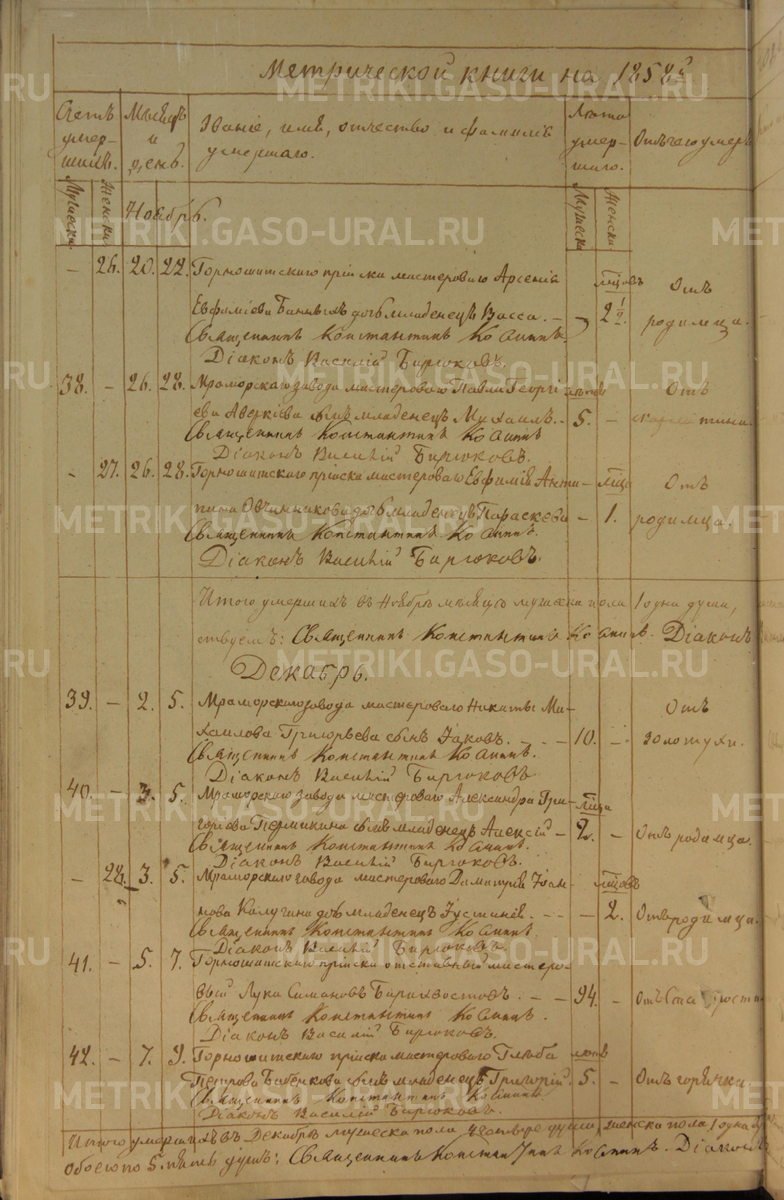 Метрической книги на 1858й
Счетъ умер-шихъ. Мѣсяцъ и день. Званіе, имя, отчество и фамилія умершаго. Лѣта умер-шаго. Отъ чего умеръ
Мужеска Женска Ноябрь. Мужеска Женска
– 26. 20. 22. Горнощитскаго пріиска мастероваго Арсенія мѣсяцовъ Отъ
Евфиміева дочь младенецъ Васса. – 2 1/2. родимца.
Священникъ Константинъ
Діаконъ Василій Бирюковъ.
38. – 26. 28. Мраморскаго завода мастероваго Павла Георгі- лѣтъ Отъ
ева Аверкіева сынъ младенецъ Михаилъ. – 5. – скарлатины.
Священникъ Константинъ
Діаконъ Василій Бирюковъ.
– 27. 26. 28. Горнощитскаго пріиска мастероваго Евфимія Анти- мѣсяца Отъ
пина Овчинникова дочь младенецъ Параскева – 1. родимца.
Священникъ Константинъ
Діаконъ Василій Бирюковъ.
Итого умершихъ въ Ноябрѣ мѣсяцѣ мужеска пола 1 одна душа,
ствуемъ: Священникъ Константинъ Діаконъ
Декабрь.
39. – 2. 5. Мраморскаго завода мастероваго Никиты Ми- Отъ
хаилова Григорьева сынъ Іаковъ. – – – 10. – золотухи.
Священникъ Константинъ
Діаконъ Василій Бирюковъ
40. – 3. 5. Мраморскаго завода мастероваго Александра Гри- мѣсяца
горіева Пермикина сынъ младенецъ Алексій – 2. – Отъ родимца.
Священникъ Константинъ
Діаконъ Василій Бирюковъ.
– 28. 3. 5. Мраморскаго завода мастероваго Димитрія Іоан- мѣсяцовъ
нова Калугина дочь младенецъ Іустинія. – – – 2. Отъ родимца.
Священникъ Константинъ
Діаконъ Василій Бирюковъ.
41. – 5. 7. Горнощитскаго пріиска отставный мастеро-
вый Лука Симановъ – – 94. – Отъ старости
Священникъ Константинъ
Діаконъ Василій Бирюковъ.
42. – 7. 9. Горнощитскаго пріиска мастероваго Глѣба лѣтъ
Петрова сынъ младенецъ Григорій. 5. – Отъ горячки
Священникъ Константинъ
Діаконъ Василій Бирюковъ.
Итого умершихъ въ Декабрѣ мужеска пола 4 четыре души, женска пола 1 одна
обоего по 5. пять душъ: Священникъ Константинъ Діаконъ
METRIKI.GASO-URAL.RU